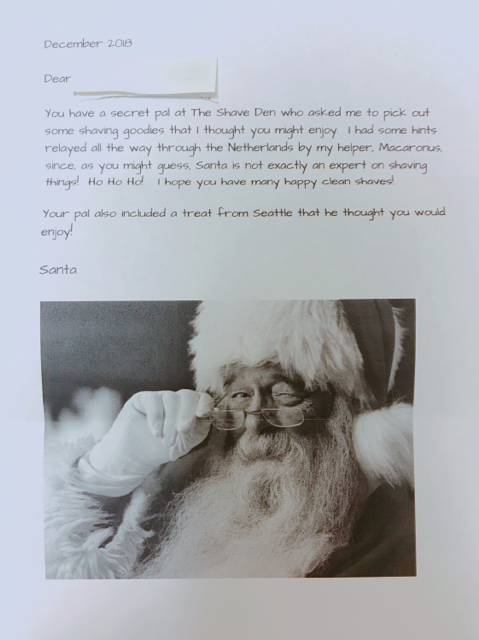 December 2018
Dear
You have a secret pal at The Shave Den who asked me to pick out
some shaving goodies that I thought you might enjoy. I had some hints
relayed all the way through the Netherlands by my helper, Macaronus,
since, as you might guess, Santa is not exactly an expert on shaving
things! Ho Ho Ho! I hope you have many happy clean shaves!
Your pal also included a treat from Seattle that he thought you would
enjoy!
Santa